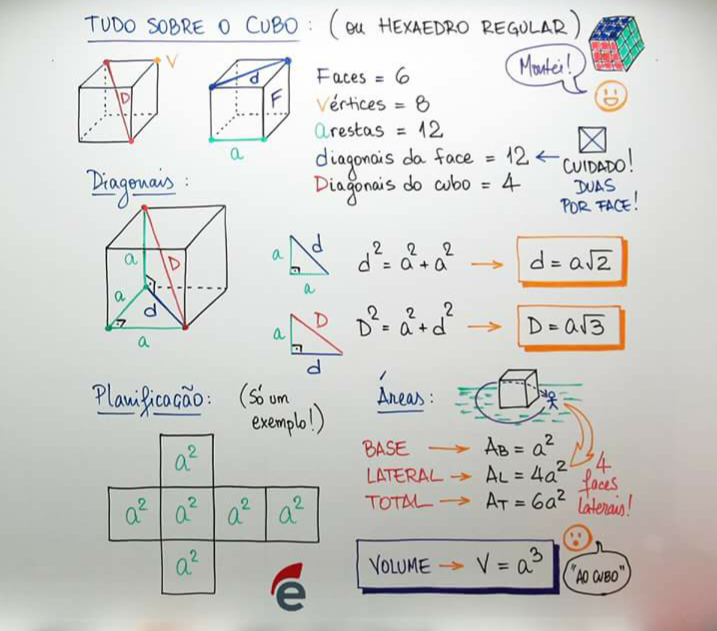 TUDO SOBRE O CUBO: (OU HEXAEDRO REGULAR)
Montei!
V
D
d
F
a
Faces = 6
Vértices = 8
arestas = 12
diagonais da face = 12 ← CUIDADO!
DUAS
POR FACE!
Diagonais do cubo = 4
Diagonais:
a
D
a
d
a
a
d
a
d² = a² + a² → d = a√2
a
D
d
D² = a² + d² → D = a√3
Planificação: (Só um
exemplo!)
a²
a² a² a² a²
a²
Áreas:
BASE → AB = a²
LATERAL → AL = 4a²
TOTAL → AT = 6a²
4
faces
laterais!
VOLUME → V = a³
"AO CUBO"
e